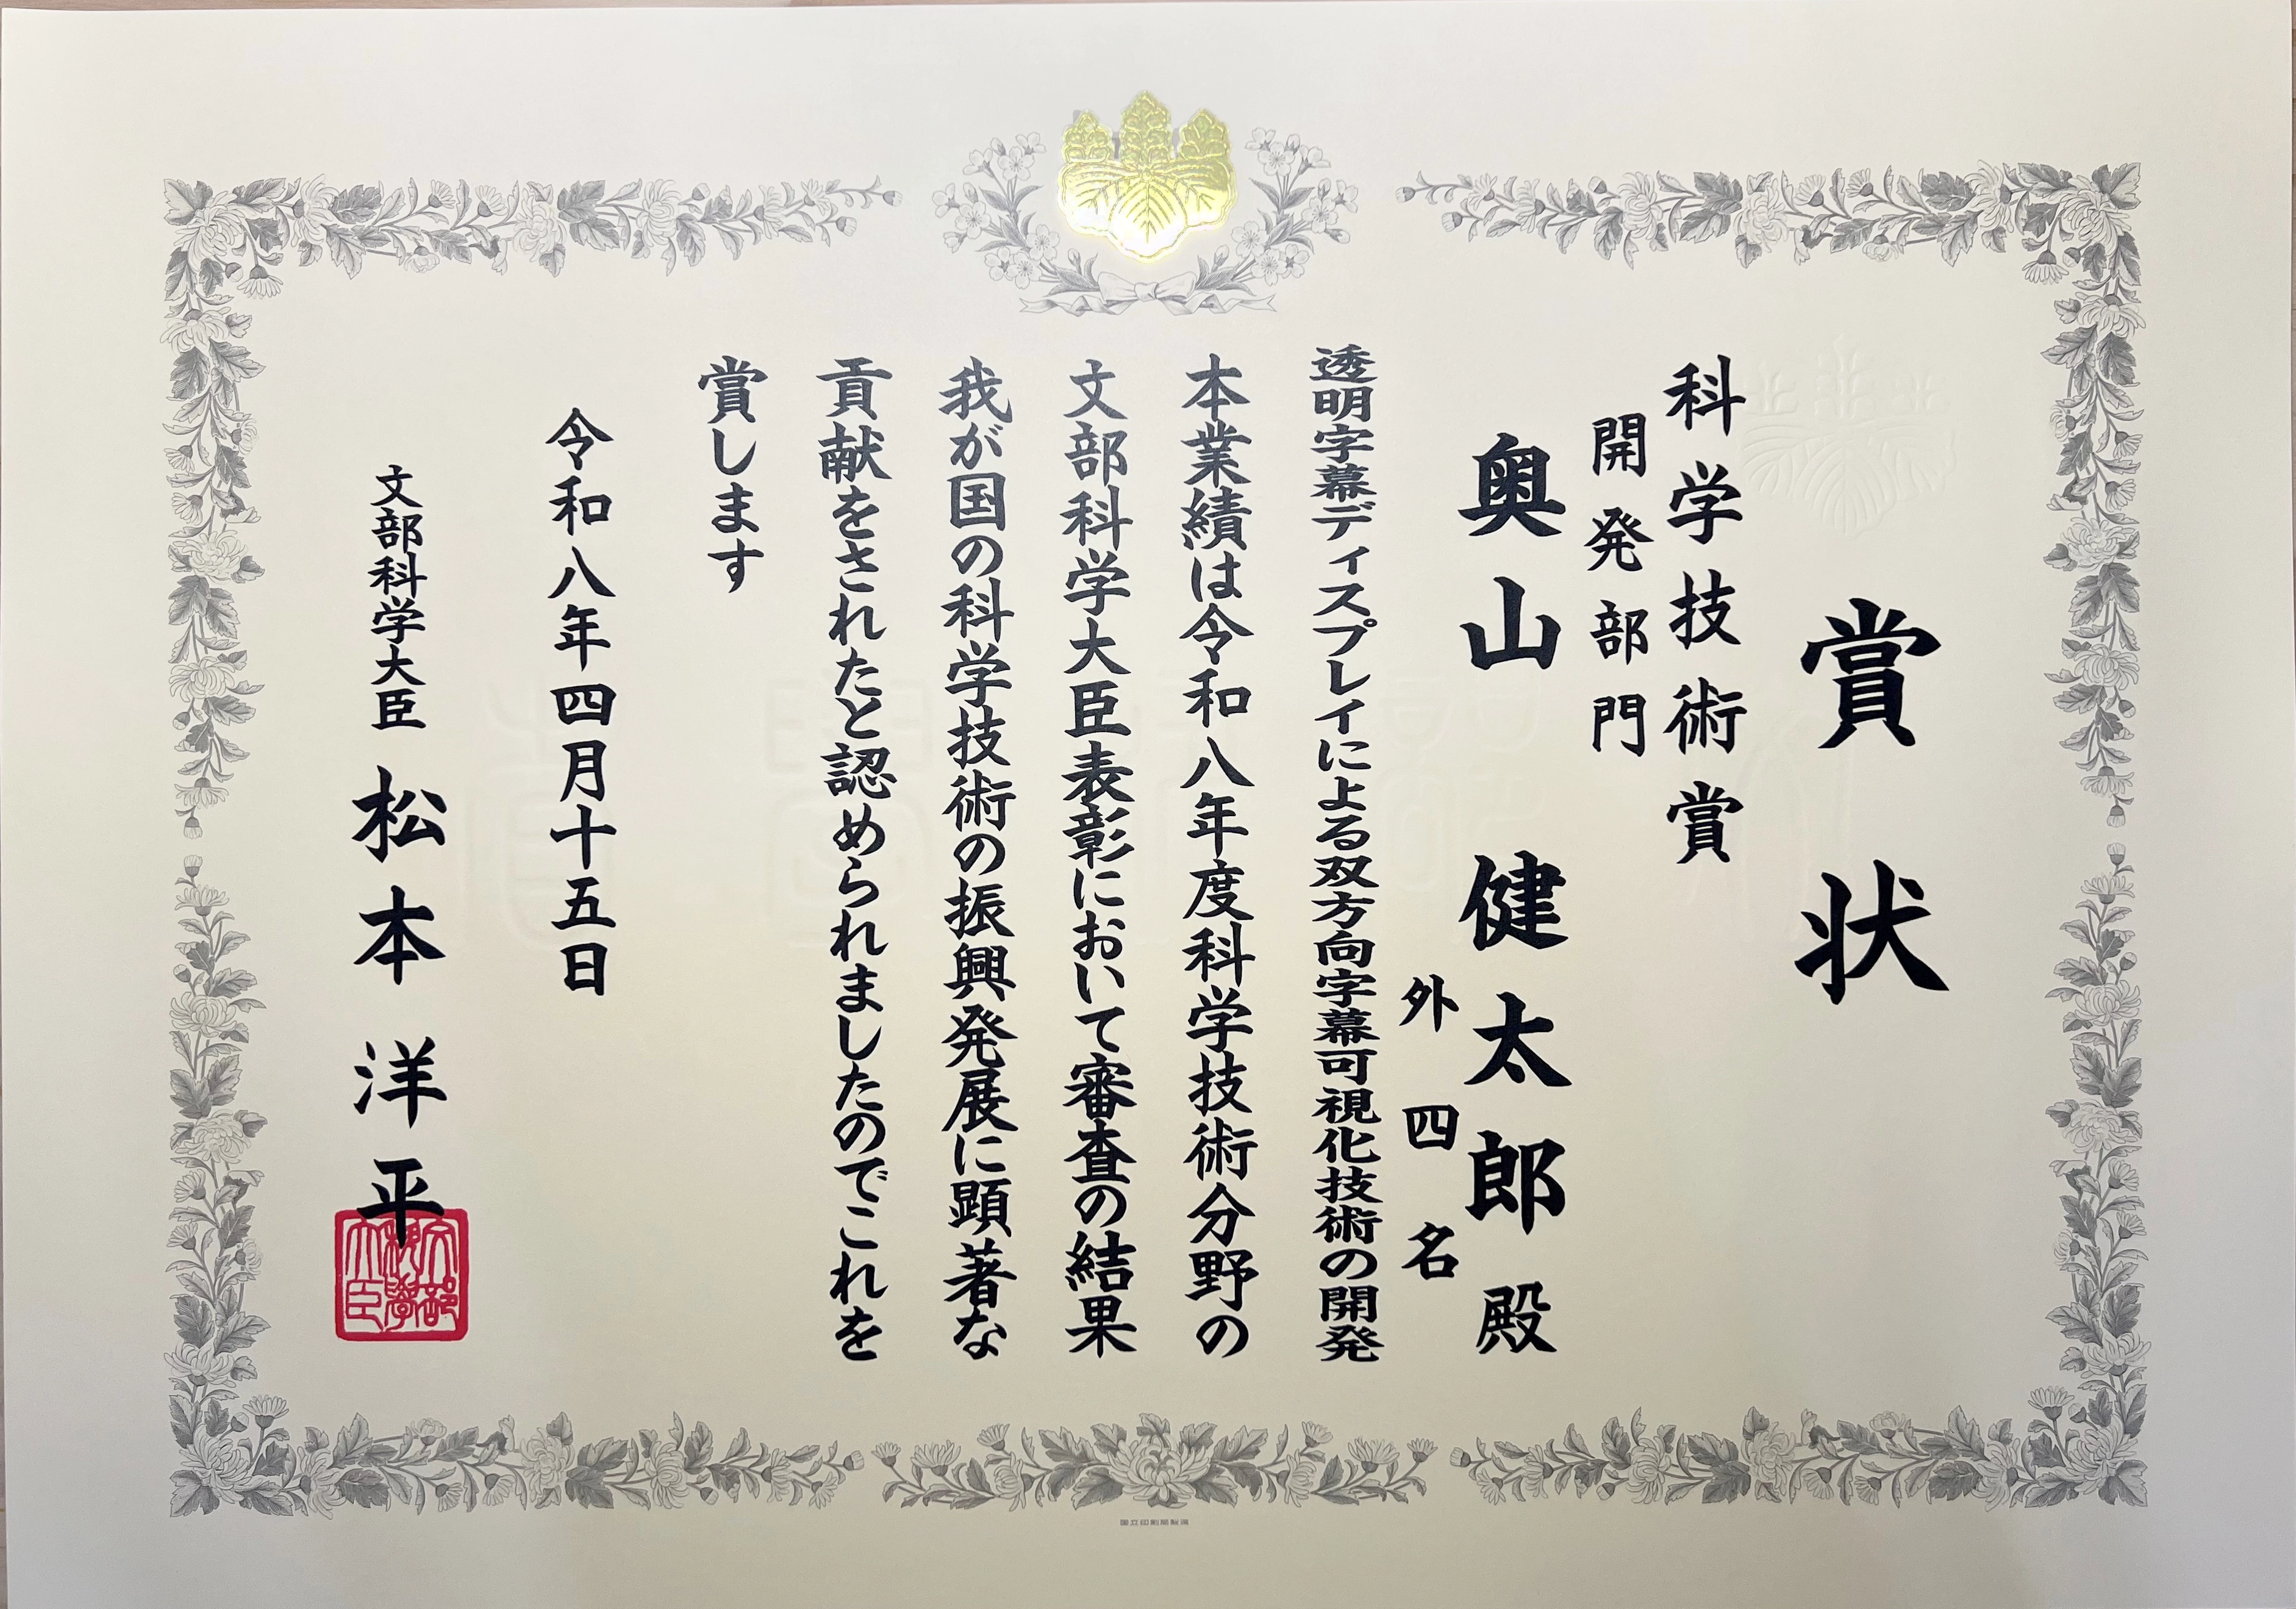 賞状
科学技術賞
開発部門
奥山 健太郎 殿
外四名
透明字幕ディスプレイによる双方向字幕可視化技術の開発
本業績は令和八年度科学技術分野の
文部科学大臣表彰において審査の結果
我が国の科学技術の振興発展に顕著な
貢献をされたと認められましたのでこれを
賞します
令和八年四月十五日
文部科学大臣 松本洋平
文部科学大臣
国立印刷局製造